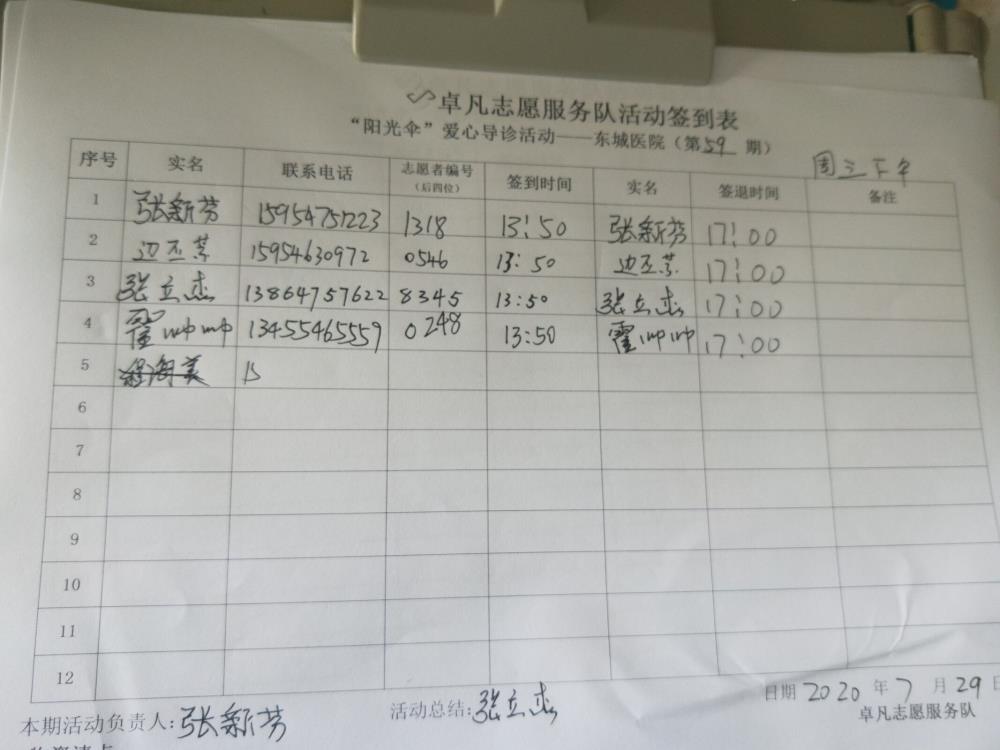 卓凡志愿服务队活动签到表
“阳光伞”爱心导诊活动——东城医院（第59期）
周三下午
序号 实名 联系电话 志愿者编号（后四位） 签到时间 实名 签退时间 备注
1 张新芬 15954751223 1318 13:50 张新芬 17:00
2 边丕芬 15954630972 0546 13:50 边丕芬 17:00
3 张立杰 13864757622 8345 13:50 张立杰 17:00
4 霍帅帅 13455465559 0248 13:50 霍帅帅 17:00
5 海美 15
6
7
8
9
10
11
12
日期 2020 年 7 月 29 日
本期活动负责人：张新芬 活动总结：张立杰
卓凡志愿服务队